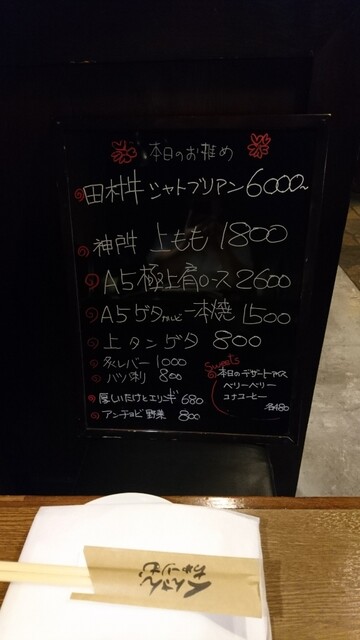 本日のお推め
田村牛 シャトブリアン 6000~
神戸牛 上もも 1800
A5極上肩ロース 2600
A5ゲタカルビ一本焼 1500
上タンゲタ 800
炙レバー 1000
ハツ刺 800
厚しいたけとエリンギ 680
アンチョビ野菜 800
Sweets
本日のデザートアイス
ベリーベリー
コナコーヒー
各480